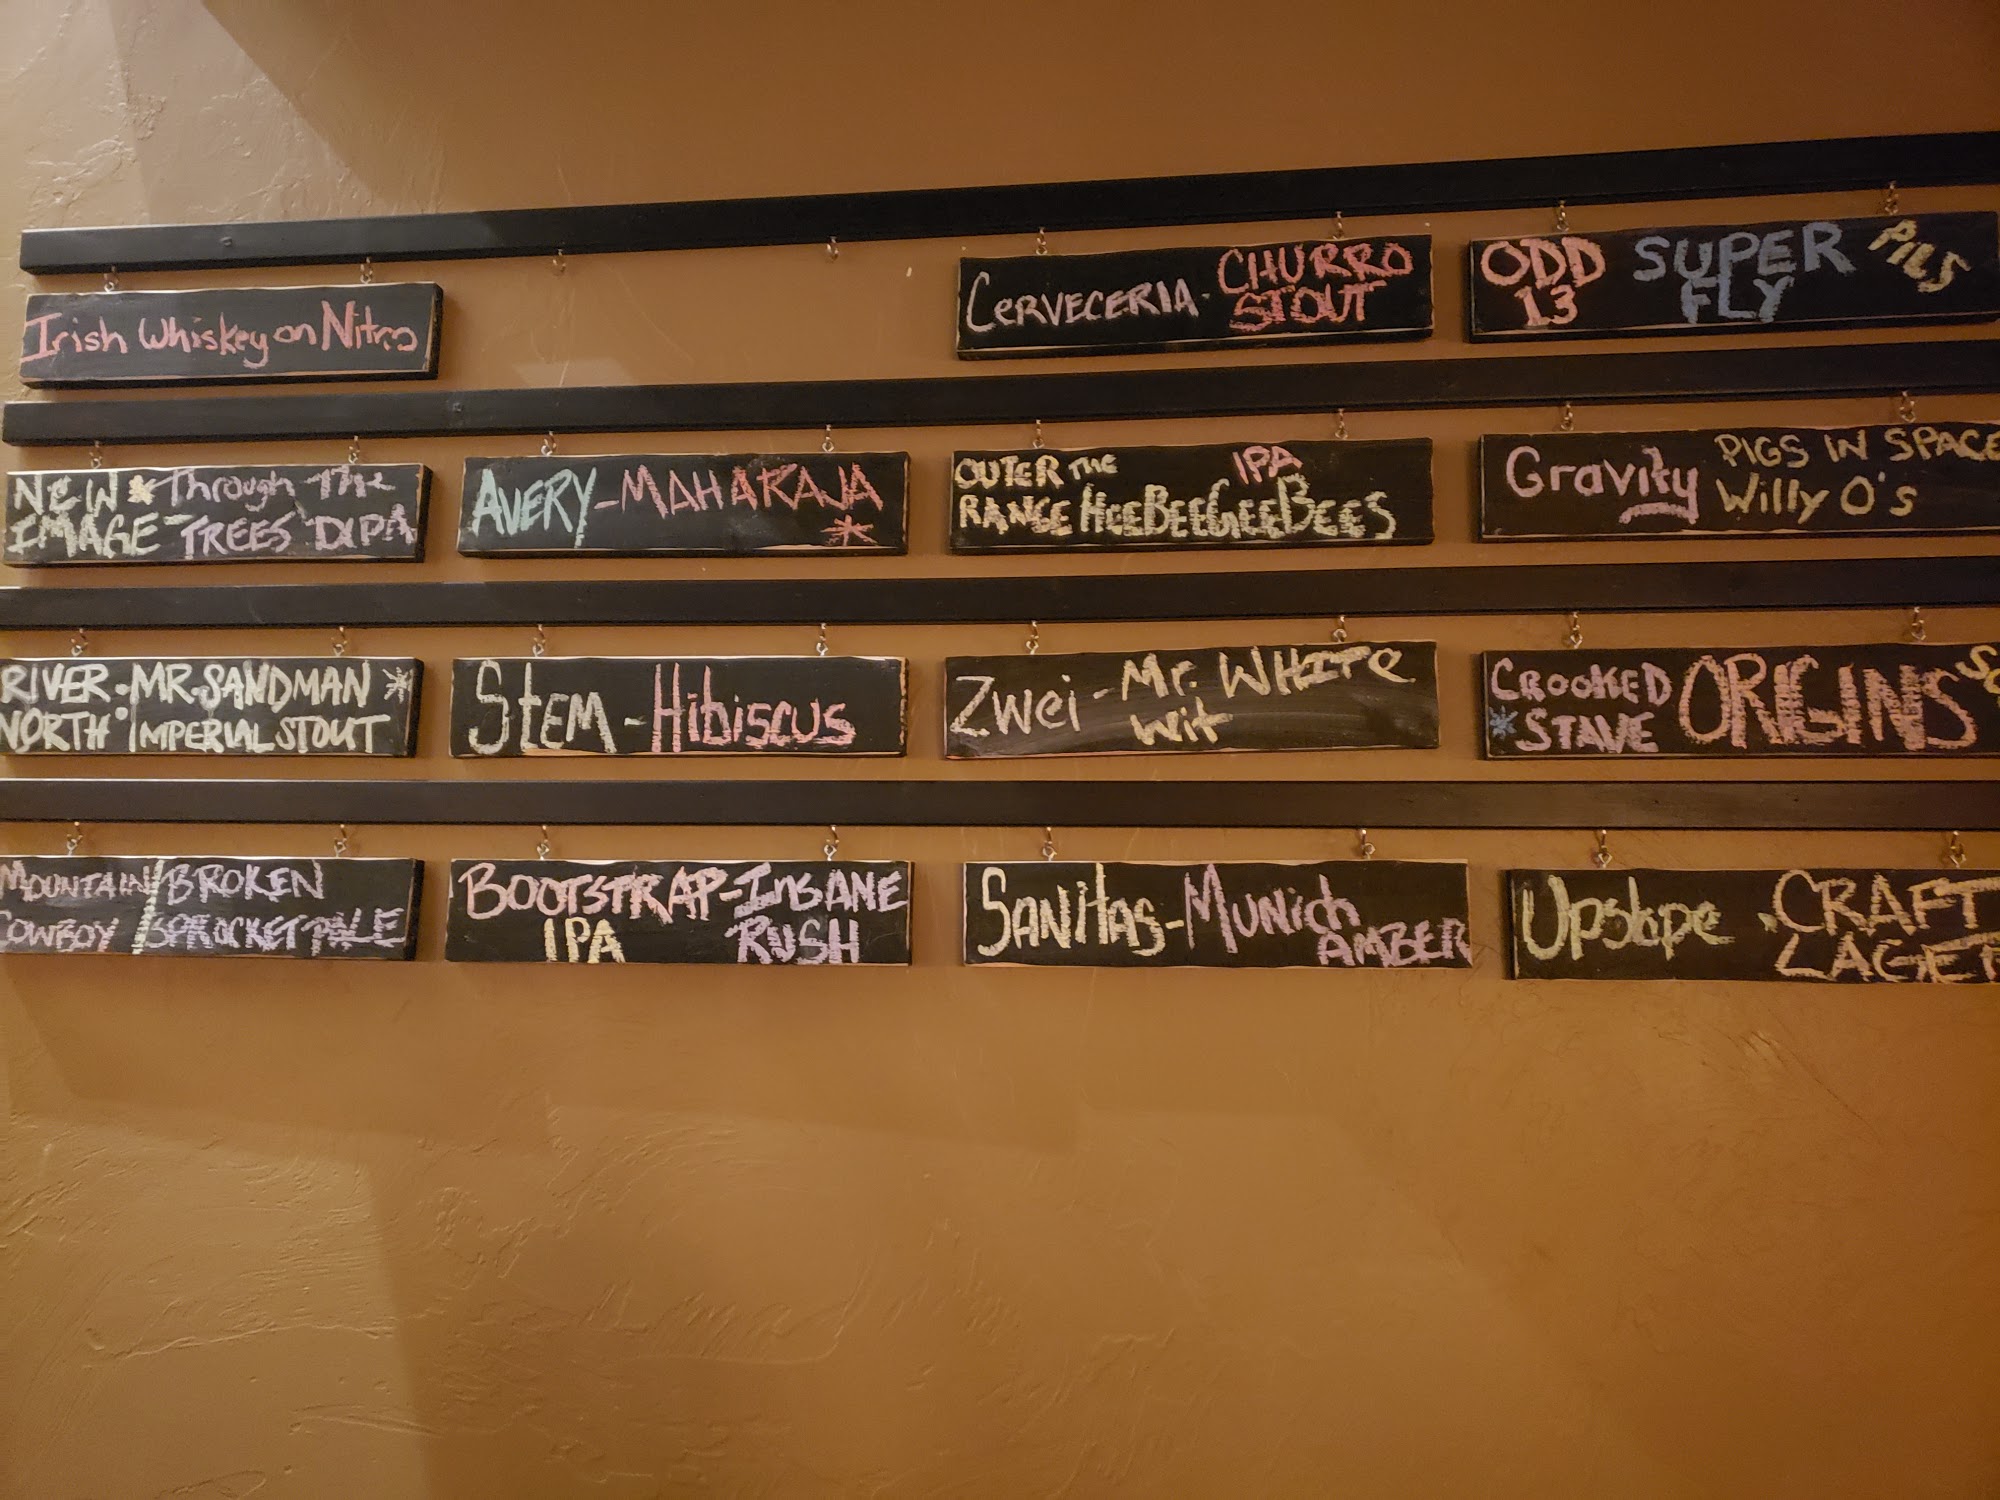 Irish Whiskey on Nitro
CERVECERIA - CHURRO
STOUT
ODD SUPER PILS
13 FLY
NEW * Through The
IMAGE - TREES DIPA
AVERY - MAHARAJA
*
OUTER THE IPA
RANGE HEEBEEGEEBEES
Gravity PIGS IN SPACE
Willy O's
RIVER - MR. SANDMAN *
NORTH IMPERIAL STOUT
STEM - Hibiscus
Zwei - Mr. WHITE
Wit
CROOKED ORIGINS
* STAVE
MOUNTAIN / BROKEN
COWBOY / SPROCKET PALE
BOOTSTRAP - INSANE
IPA RUSH
SANITAS - MUNICH
AMBER
Upslope - CRAFT
LAGER